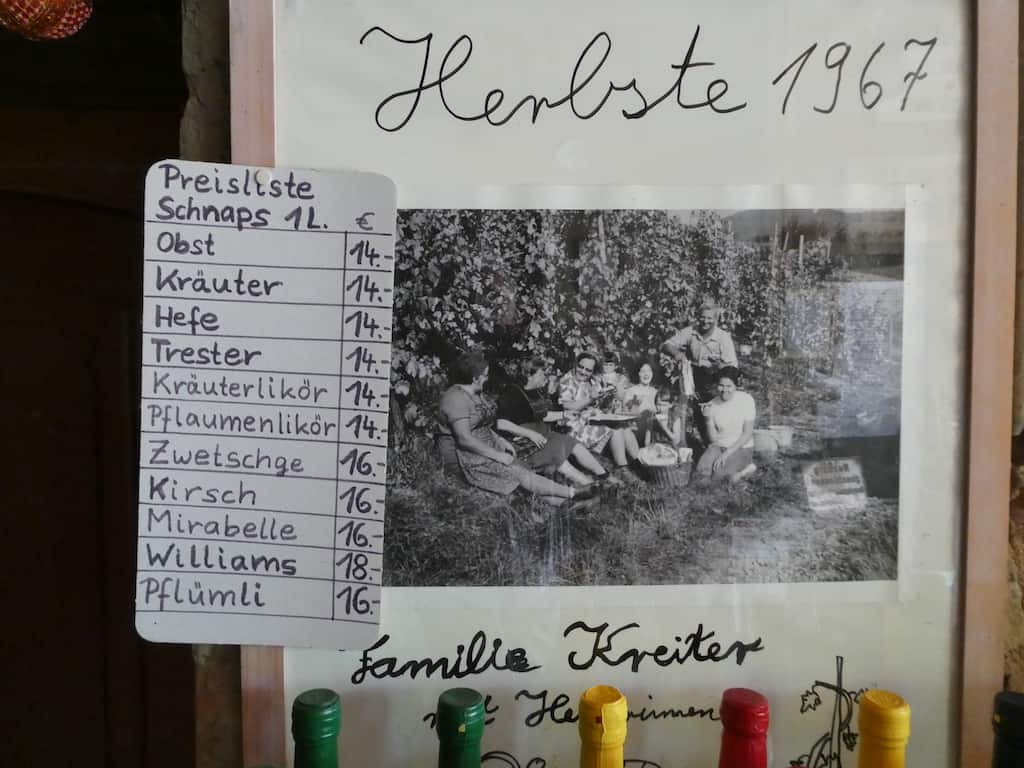 Herbste 1967
Preisliste
Schnaps 1L. €
Obst 14.-
Kräuter 14.-
Hefe 14.-
Trester 14.-
Kräuterlikör 14.-
Pflaumenlikör 14.-
Zwetschge 16.-
Kirsch 16.-
Mirabelle 16.-
Williams 18.-
Pflümli 16.-
Familie Kreiter